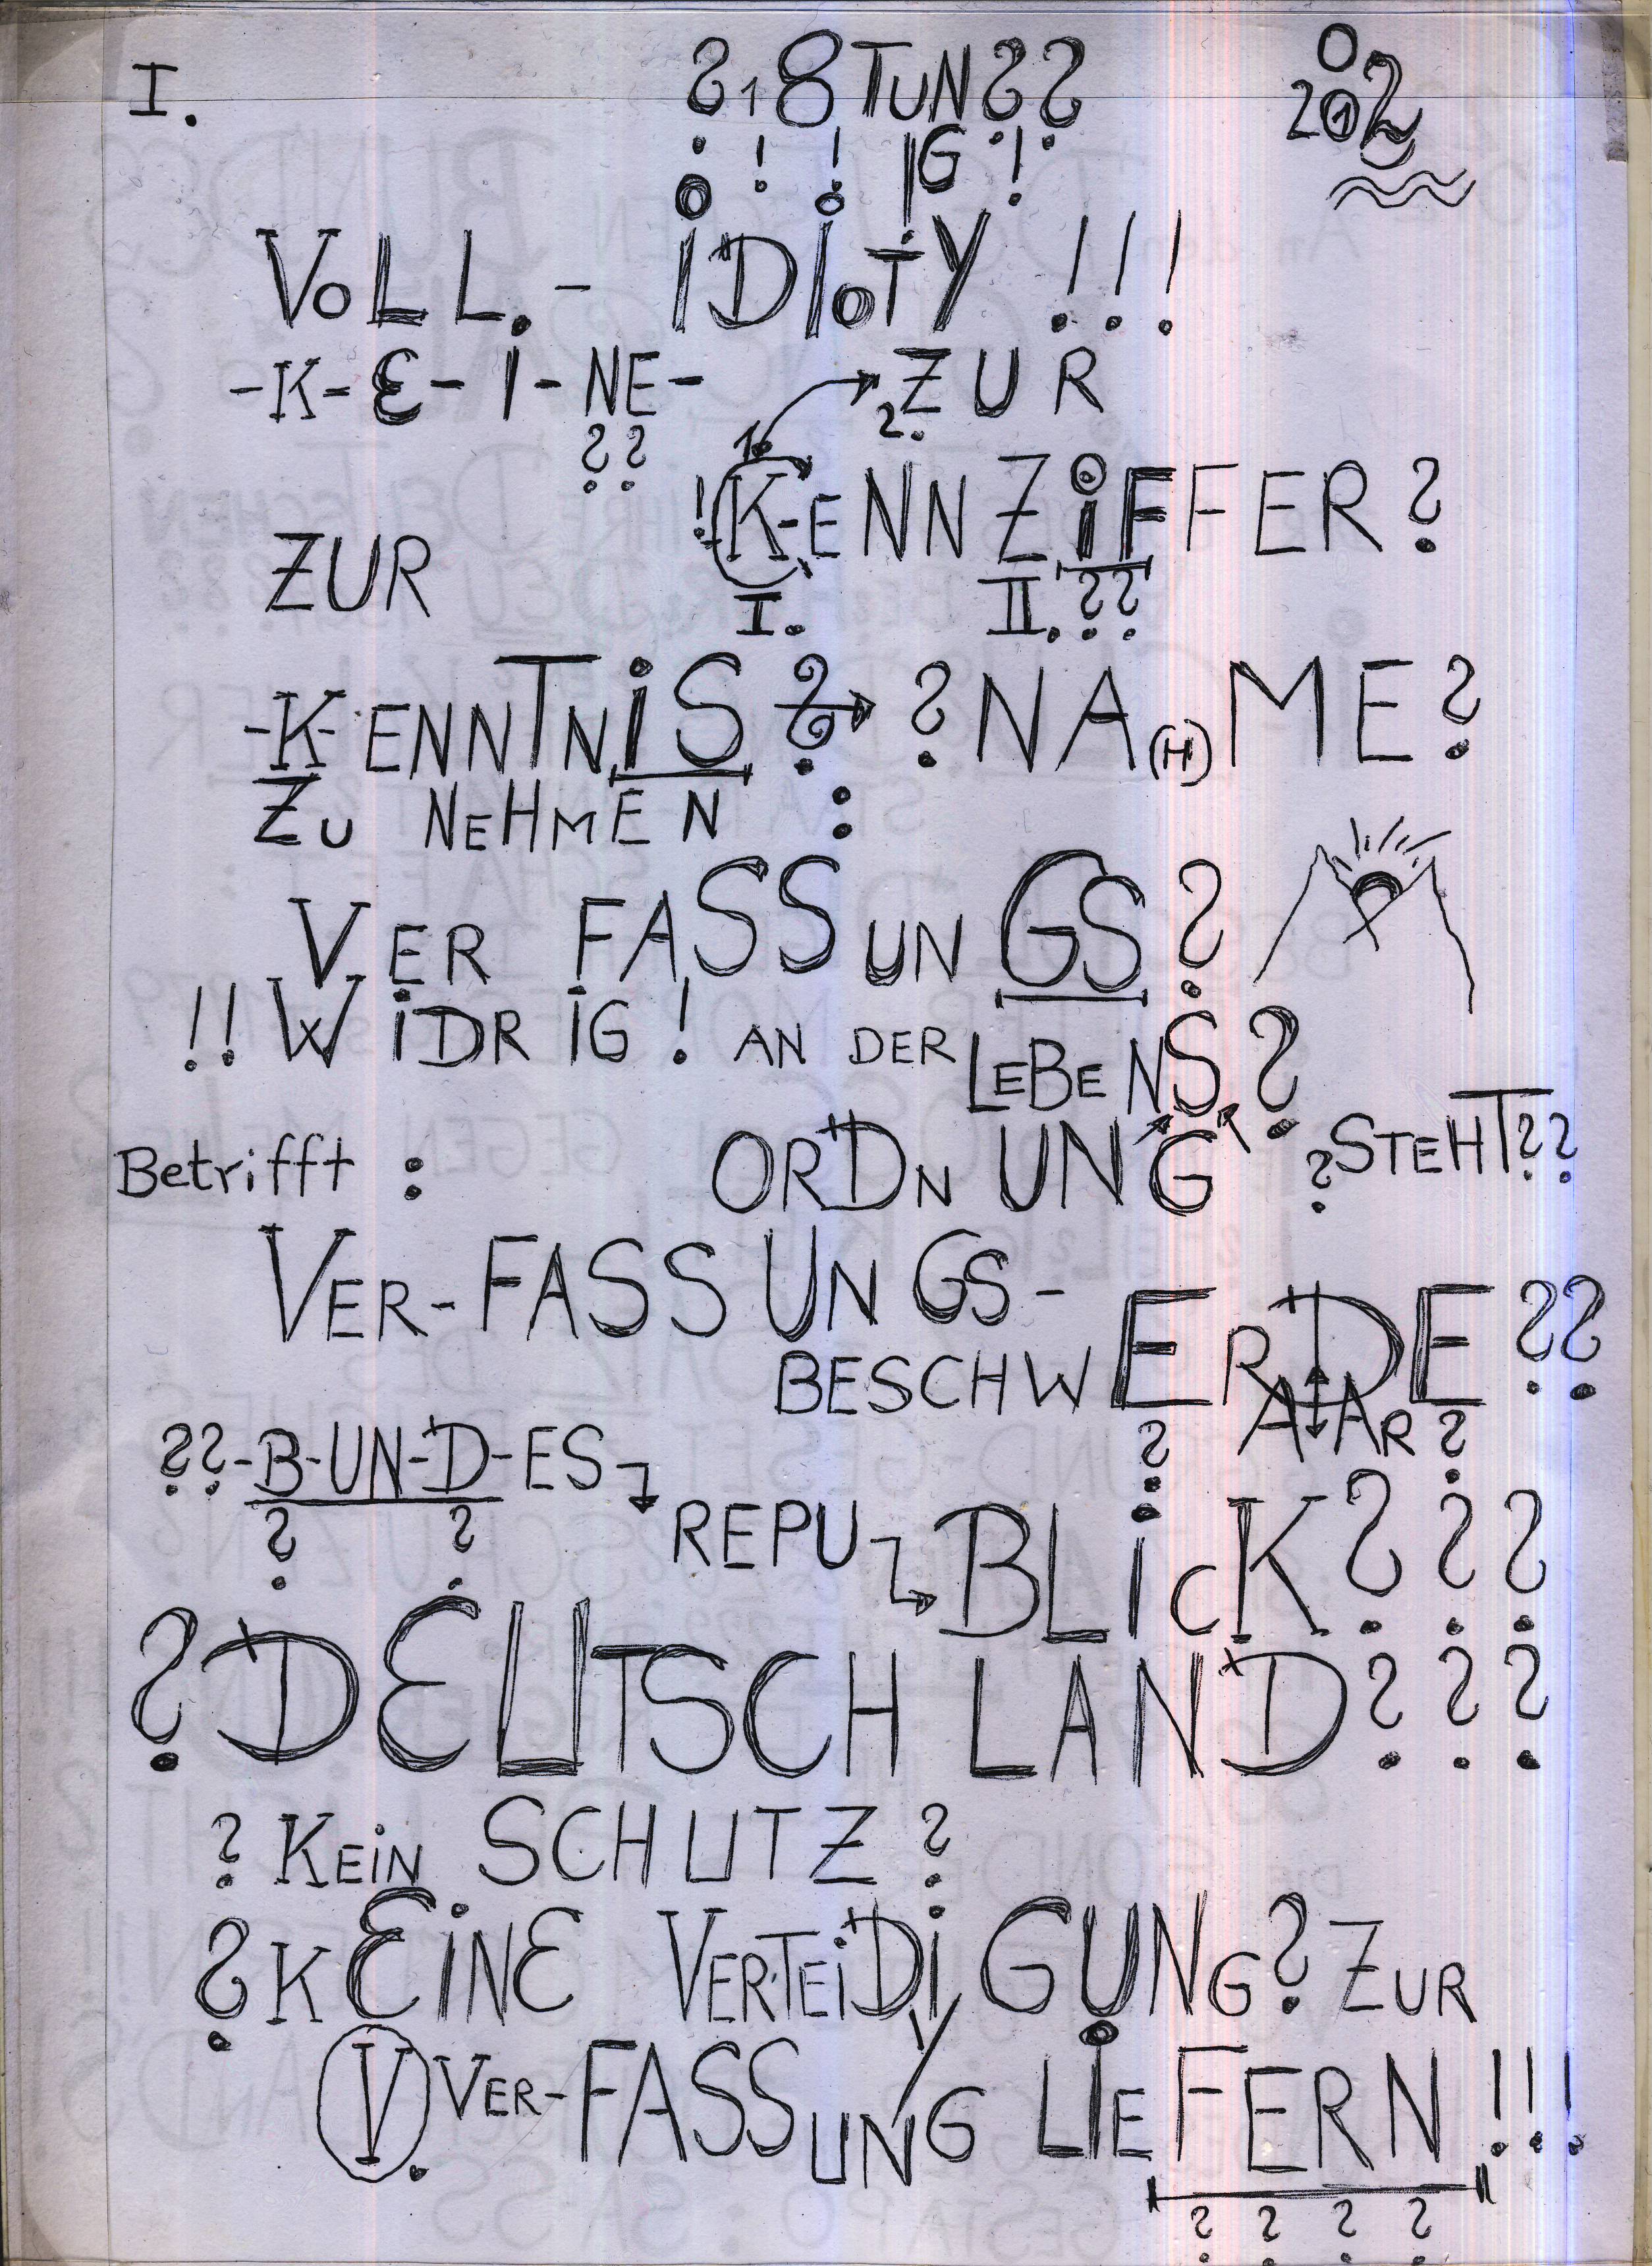 I. ?18TUN??
2012
! ! IG !
VOLL.- IDIOTY !!!
-K-E-I-NE- ZUR
?? 1. 2.
!KENNZIFFER?
ZUR
I. II. ??
-K-ENNTNIS? ?NA(H)ME?
ZU NEHMEN :
VER FASSUNGS?
!! WIDRIG! AN DER LEBENS?
Betrifft : ORDNUNG ?STEHT??
VER-FASSUNGS-
BESCHWERDE??
ALAR?
??-B-UN-D-ES
? ?
REPU BLICK???
?DEUTSCHLAND???
? KEIN SCHUTZ?
?KEINE VERTEIDIGUNG? ZUR
V. VER-FASSUNG LIEFERN!!!
? ? ? ?